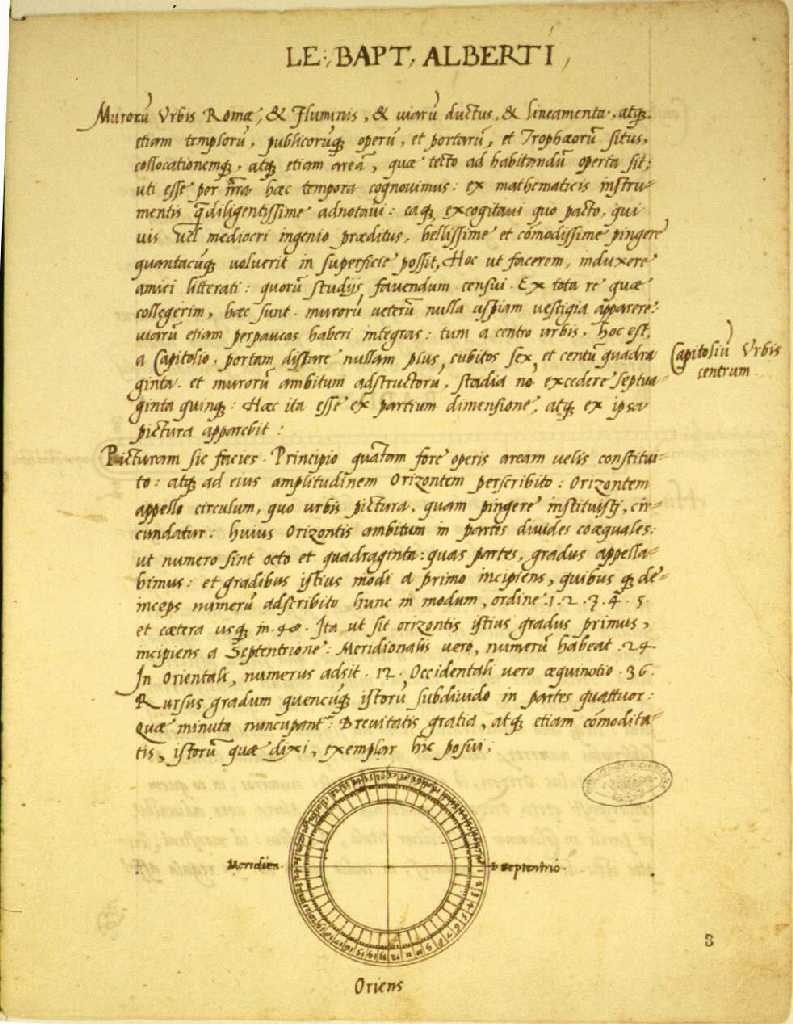 LE: BAPT, ALBERTI,
Murorū Vrbis Romæ, & Fluminis, & uiarū ductus, & lineamenta, atq;
etiam templorū, publicorūq; operū, et portarū, et Trophæorū situs,
collocationemq;, atq; etiam areā, quæ tecto ad habitandū operta sit;
uti esse per nrā hæc tempora cognouimus: ex mathematicis instru-
mentis q̃diligentissime adnotaui: eaq; excogitaui quo pacto, qui
uis uel mediocri ingenio præditus, bellissime et cōmodissime pingere
quantacūq; voluerit in superficie possit, Hoc ut facerem, induxere
amici litterati: quorū studijs fauendum censui. Ex tota re quæ
collegerim, hæc sunt. murorū ueterū nulla uspiam uestigia apparere:
uiarū etiam perpaucas haberi integras: tum a centro urbis, hoc est,
a Capitolio, portam distare nullam plus, cubitos sex, et centū quadra
ginta. et murorū ambitum adstructorū, stadia nō excedere septua-
ginta quinq;: Hæc ita esse ex partium dimensione, atq; ex ipsa
pictura apparebit:
Capitoliū Vrbis
centrum
Picturam sic facies. Principio quātam fore operis aream uelis constitui-
to: atq; ad eius amplitudinem Orizontem perscribito: Orizontem
appello circulum, quo urbis pictura, quam pingere instituisti, cir-
cundatur: huius Orizontis ambitum in partes diuides coæquales:
ut numero sint octo et quadraginta: quas partes, gradus appella-
bimus: et gradibus istius modi a primo incipiens, quibus q; de-
inceps numerū adscribito hunc in modum, ordine .1. 2. 3. 4. 5.
et cætera usq; in .48. Ita ut sit orizontis istius gradus primus,
incipiens a Septentrione: Meridionalis uero, numerū habeat .24.
In Orientali, numerus adsit .12. Occidentali uero æquinotio .36.
Rursus gradum quencūq; istorū subdiuido in partes quattuor:
Quæ minuta nuncupant: Breuitatis gratia, atq; etiam cōmodita-
tis, istorū quæ dixi, exemplar hic posui.
Meridies
Septentrio
Oriens
8